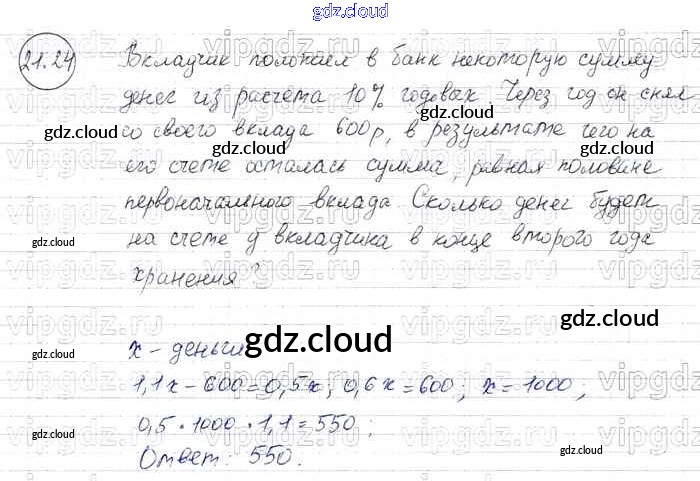 gdz.cloud
21.24
Вкладчик положил в банк некоторую сумму
денег из расчёта 10% годовых. Через год он снял
gdz.cloud
gdz.cloud
со своего вклада 600р, в результате чего на
его счете осталась сумма, равная половине
gdz.cloud
gdz.cloud
первоначального вклада. Сколько денег будет
на счете у вкладчика в конце второго года
gdz.cloud
gdz.cloud
хранения?
gdz.cloud
x - деньги
gdz.cloud
1,1x - 600 = 0,5x; 0,6x = 600; x = 1000;
0,5 · 1000 · 1,1 = 550;
gdz.cloud
gdz.cloud
Ответ: 550.